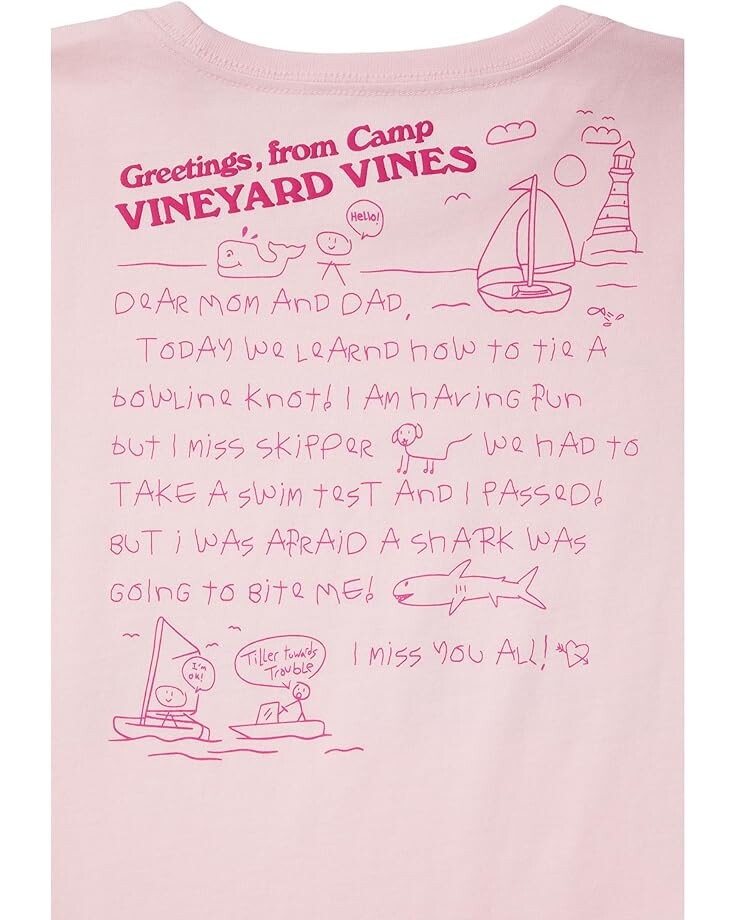 Greetings, from Camp
VINEYARD VINES
Hello!
DeAR MOM AnD DAD,
TODAY We LeARnD hOW to tie A
bOWLine Knot! I AM hAVinG FUn
but I miss SKiPPeR We hAD to
TAKE A SWim test AnD I PASSeD!
BUT i WAS AFRAiD A ShARK WAS
GOinG to Bite Me!
I miss YOU ALL!
I'm
OK!
Tiller towards
Trouble